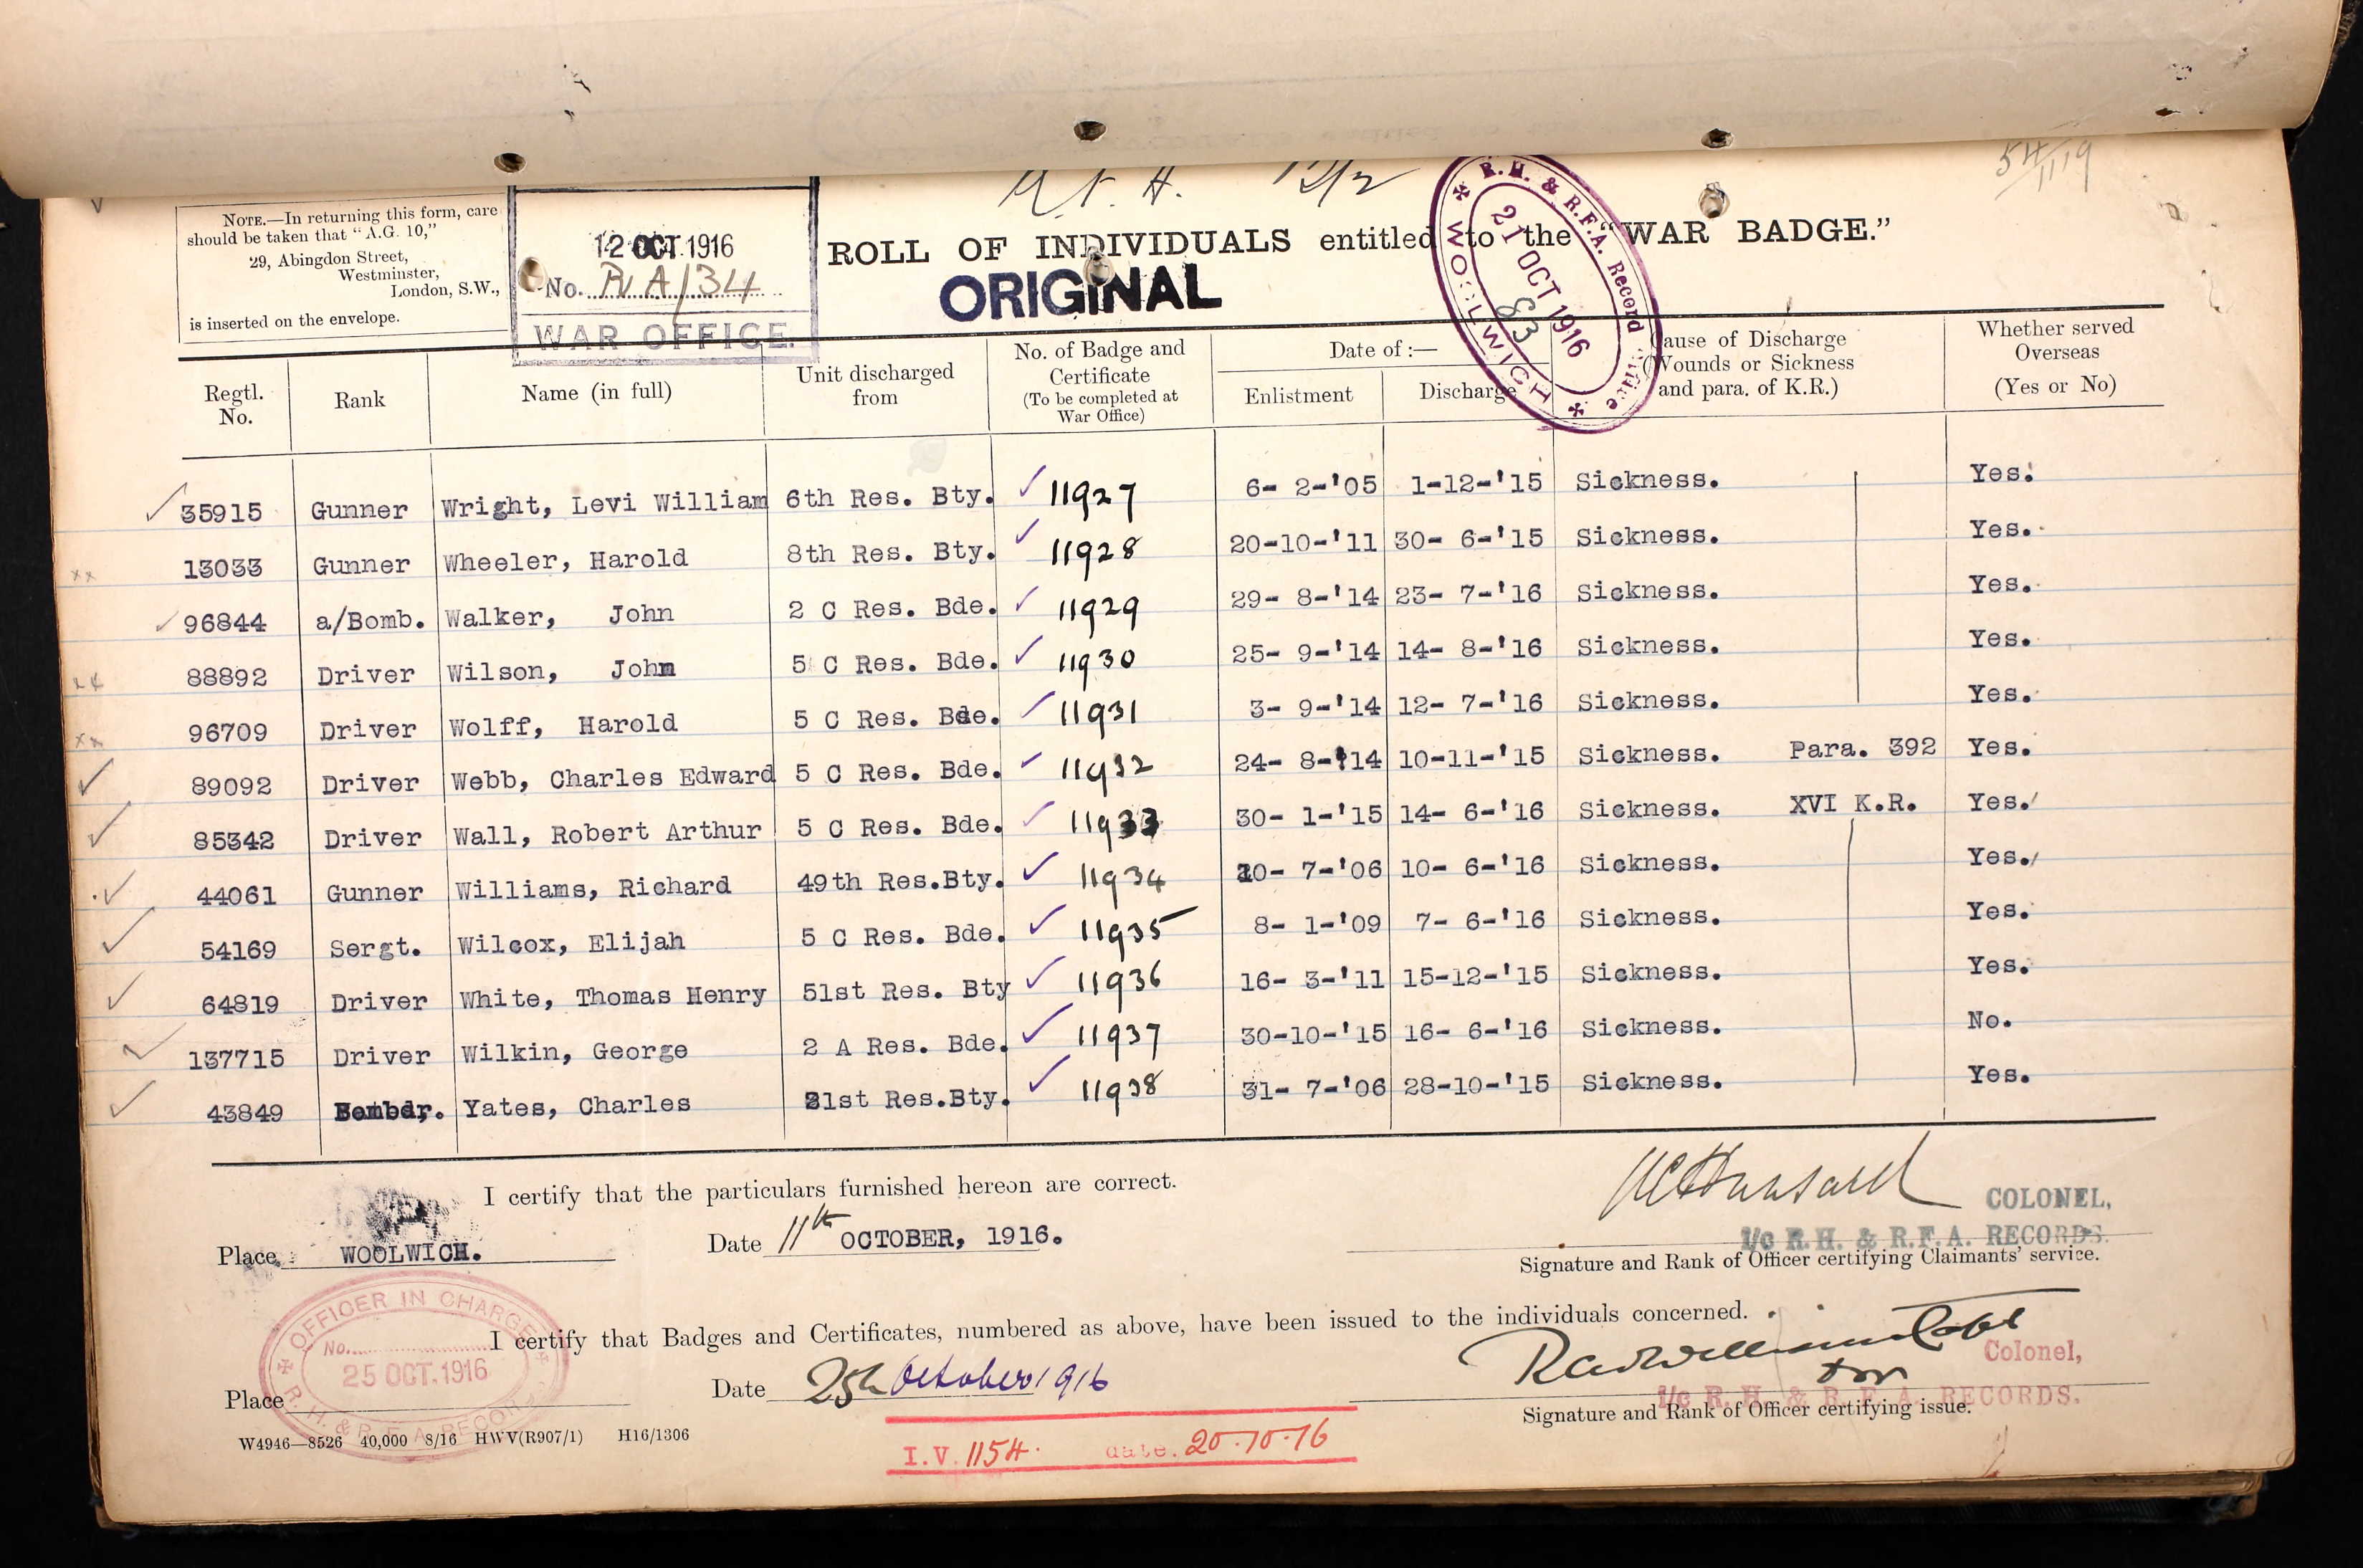 54/119
NOTE.—In returning this form, care
should be taken that "A.G. 10,"
29, Abingdon Street,
Westminster,
London, S.W.,
is inserted on the envelope.
12 OCT 1916
No. R A/34
WAR OFFICE.
ROLL OF INDIVIDUALS entitled to the "WAR BADGE."
ORIGINAL
R.H. & R.F.A. Record Office
WOOLWICH
21 OCT 1916
83
Regtl. No. Rank Name (in full) Unit discharged from No. of Badge and Certificate (To be completed at War Office) Date of :— Enlistment Discharge Cause of Discharge (Wounds or Sickness and para. of K.R.) Whether served Overseas (Yes or No)
35915 Gunner Wright, Levi William 6th Res. Bty. 11927 6- 2-'05 1-12-'15 Sickness. Yes.
13033 Gunner Wheeler, Harold 8th Res. Bty. 11928 20-10-'11 30- 6-'15 Sickness. Yes.
96844 a/Bomb. Walker, John 2 C Res. Bde. 11929 29- 8-'14 23- 7-'16 Sickness. Yes.
88892 Driver Wilson, John 5 C Res. Bde. 11930 25- 9-'14 14- 8-'16 Sickness. Yes.
96709 Driver Wolff, Harold 5 C Res. Bde. 11931 3- 9-'14 12- 7-'16 Sickness. Yes.
89092 Driver Webb, Charles Edward 5 C Res. Bde. 11932 24- 8-'14 10-11-'15 Sickness. Para. 392 Yes.
85342 Driver Wall, Robert Arthur 5 C Res. Bde. 11933 30- 1-'15 14- 6-'16 Sickness. XVI K.R. Yes.
44061 Gunner Williams, Richard 49th Res.Bty. 11934 10- 7-'06 10- 6-'16 Sickness. Yes.
54169 Sergt. Wilcox, Elijah 5 C Res. Bde. 11935 8- 1-'09 7- 6-'16 Sickness. Yes.
64819 Driver White, Thomas Henry 51st Res. Bty 11936 16- 3-'11 15-12-'15 Sickness. Yes.
137715 Driver Wilkin, George 2 A Res. Bde. 11937 30-10-'15 16- 6-'16 Sickness. No.
43849 Bombdr. Yates, Charles 21st Res.Bty. 11938 31- 7-'06 28-10-'15 Sickness. Yes.
I certify that the particulars furnished hereon are correct.
COLONEL,
Place WOOLWICH. Date 11th OCTOBER, 1916. I/c R.H. & R.F.A. RECORDS.
Signature and Rank of Officer certifying Claimants' service.
OFFICER IN CHARGE
No.
25 OCT. 1916
R.H. & R.F.A. RECORDS
I certify that Badges and Certificates, numbered as above, have been issued to the individuals concerned.
Colonel,
Place Date 25th October 1916 for I/c R.H. & R.F.A. RECORDS.
Signature and Rank of Officer certifying issue.
W4946—8526 40,000 8/16 HWV(R907/1) H16/1306
I.V. 1154. date. 20.10.16